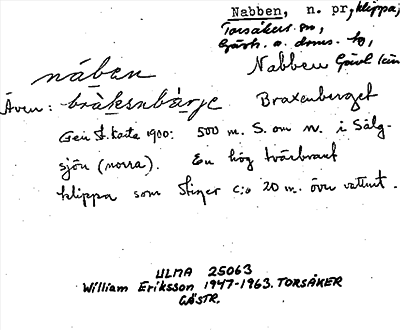 Nabben, n. pr., klippa,
Torsåkers sn,
Gästr. ö. doms. hd,
nában Nabben Gävl län
Även: bràksnbàrje Braxenberget
Gen.st.karta 1900: 500 m. S. om N. i Sälg-
sjön (norra). En hög tvärbrant
klippa som stiger c:a 20 m. över vattnet.
ULMA 25063
William Eriksson 1947-1963. TORSÅKER
GÄSTR.